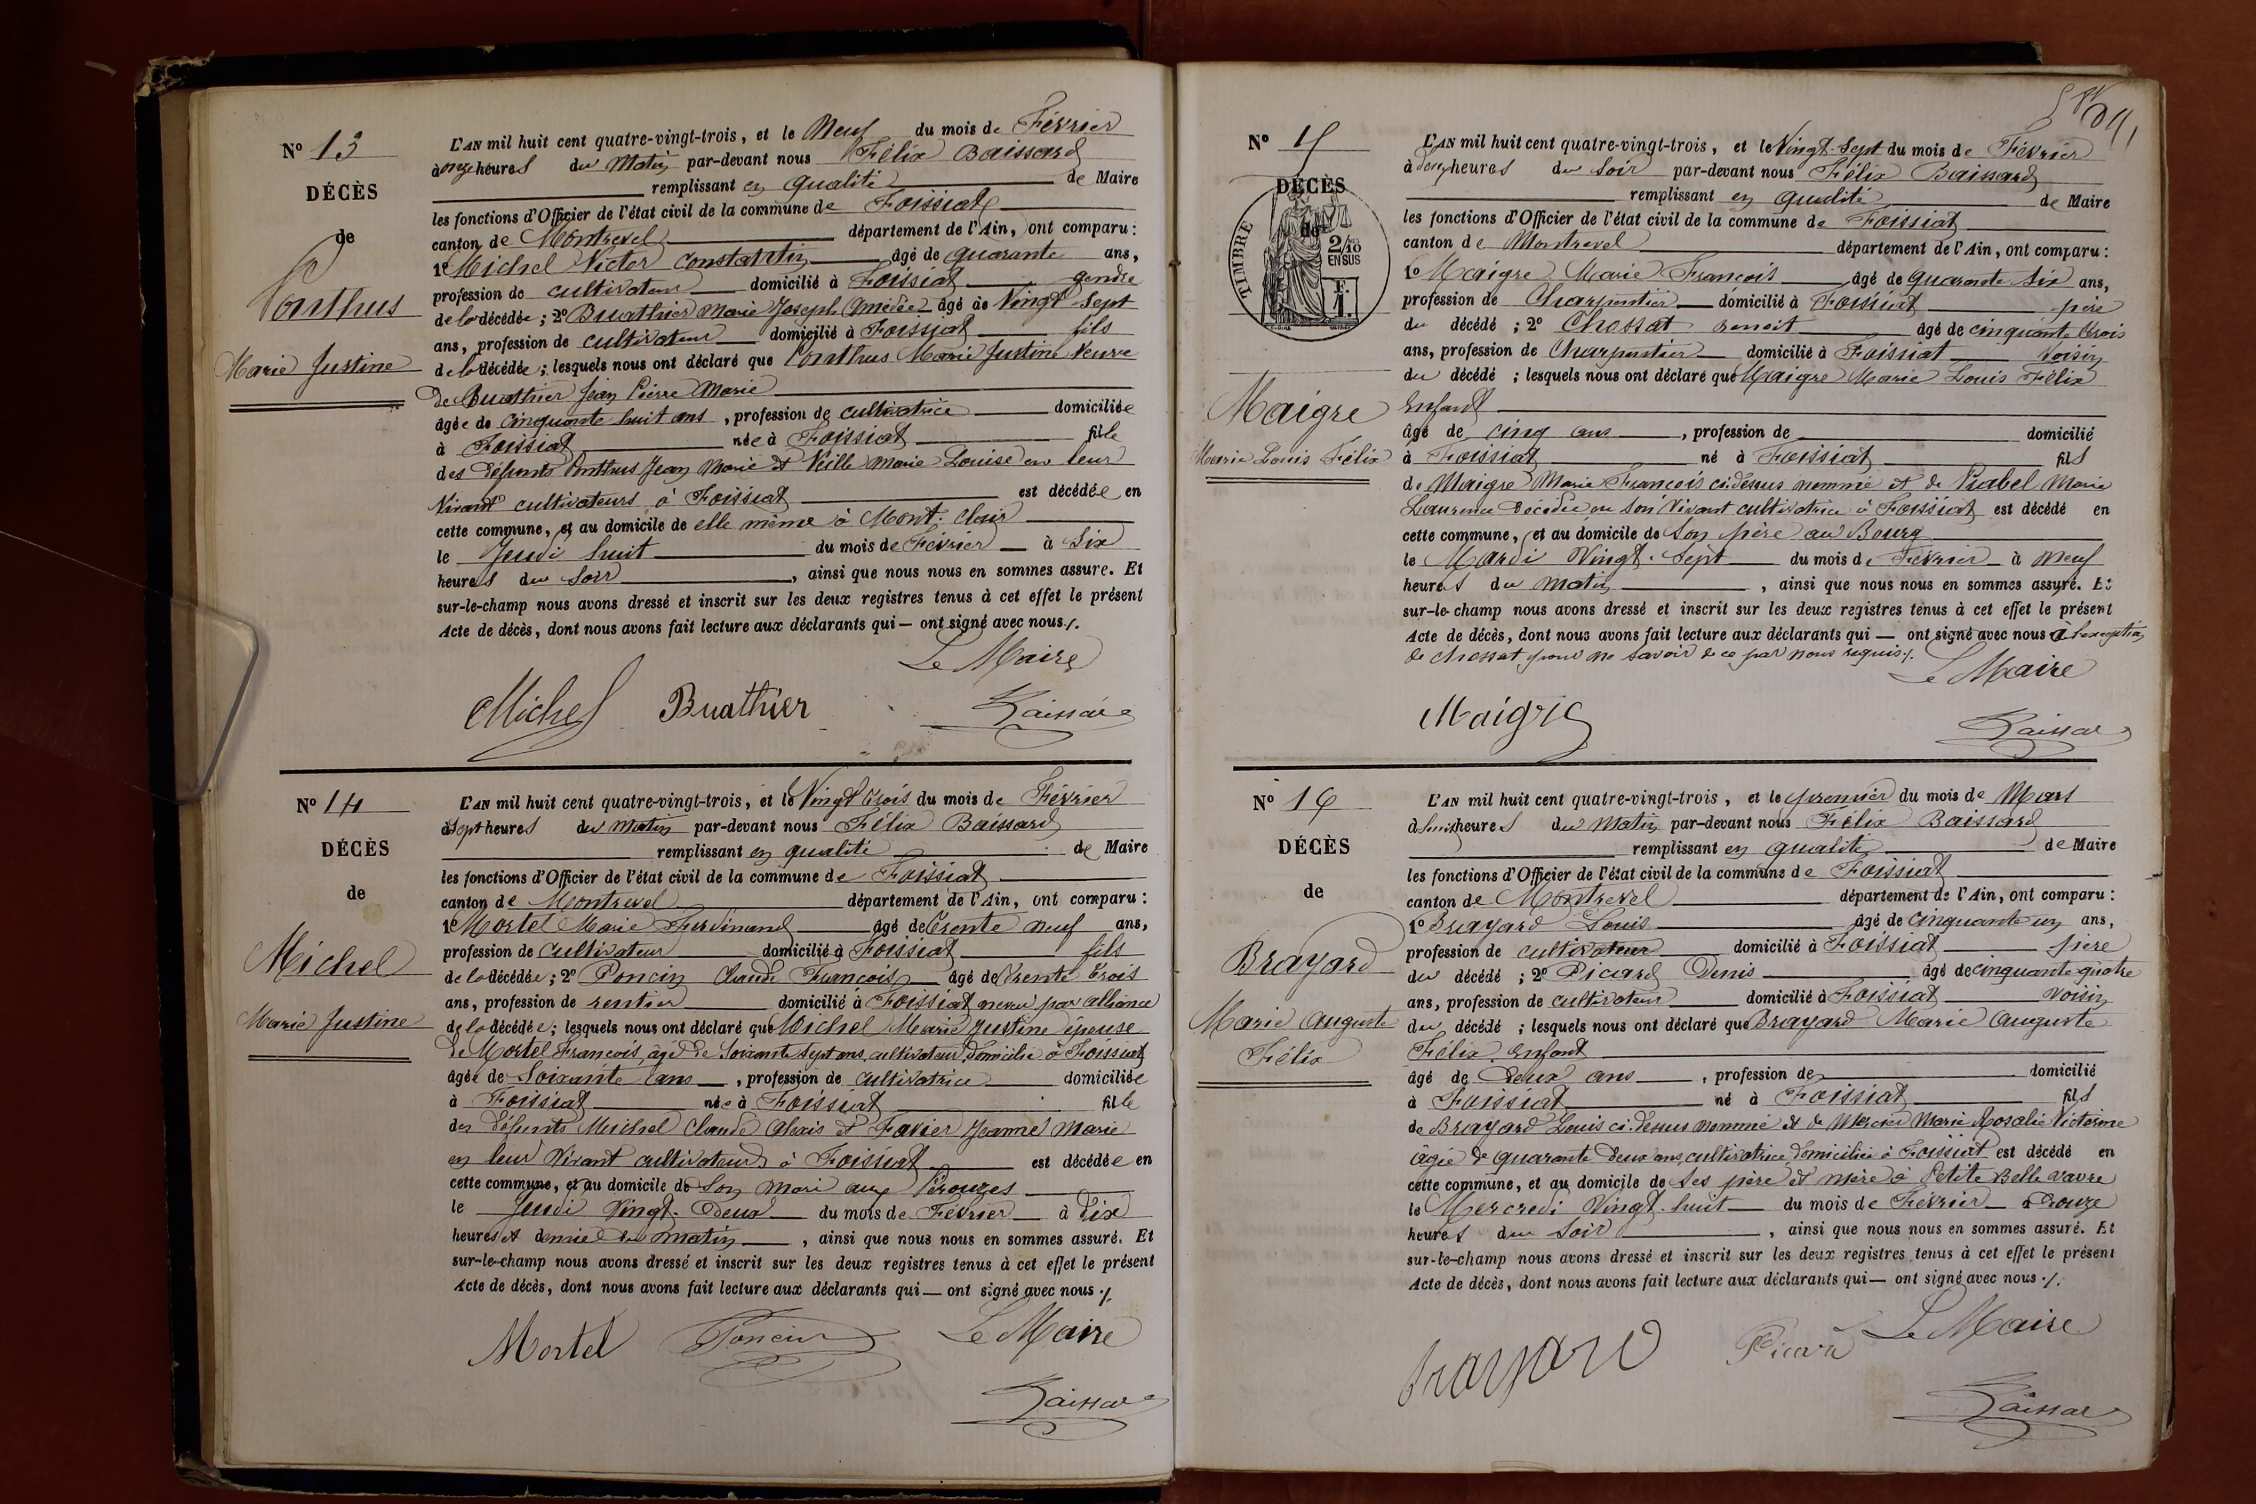 N° 13
DÉCÈS
de
Ponthus
Marie Justine
L'AN mil huit cent quatre-vingt-trois, et le Neuf du mois de Février
à onze heures du Matin par-devant nous Félix Baissard
remplissant en qualité de Maire
les fonctions d'Officier de l'état civil de la commune de Foissiat
canton de Montrevel département de l'Ain, ont comparu :
1° Michel Victor Constantin âgé de quarante ans,
profession de cultivateur domicilié à Foissiat gendre
de la décédée ; 2° Buathier Marie Joseph Amédée âgé de Vingt-Sept
ans, profession de cultivateur domicilié à Foissiat fils
de la décédée ; lesquels nous ont déclaré que Ponthus Marie Justine Veuve
de Buathier Jean Pierre Marie
âgée de cinquante huit ans, profession de cultivatrice domiciliée
à Foissiat née à Foissiat fille
des défunts Ponthus Jean Marie et Veille Marie Louise en leur
Vivant cultivateurs à Foissiat est décédée en
cette commune, et au domicile de elle même à Mont-Clair
le Jeudi huit du mois de Février à Six
heures du Soir, ainsi que nous nous en sommes assuré. Et
sur-le-champ nous avons dressé et inscrit sur les deux registres tenus à cet effet le présent
Acte de décès, dont nous avons fait lecture aux déclarants qui — ont signé avec nous ./.
Le Maire
Michel Buathier Baissard
N° 14
DÉCÈS
de
Michel
Marie Justine
L'AN mil huit cent quatre-vingt-trois, et le Vingt trois du mois de Février
à sept heures du Matin par-devant nous Félix Baissard
remplissant en qualité de Maire
les fonctions d'Officier de l'état civil de la commune de Foissiat
canton de Montrevel département de l'Ain, ont comparu :
1° Mortel Marie Ferdinand âgé de trente neuf ans,
profession de cultivateur domicilié à Foissiat fils
de la décédée ; 2° Poncin Claude François âgé de trente trois
ans, profession de rentier domicilié à Foissiat neveu par alliance
de la décédée ; lesquels nous ont déclaré que Michel Marie Justine épouse
de Mortel François, âgé de Soixante sept ans, cultivateur, domicilié à Foissiat
âgée de Soixante ans, profession de cultivatrice domiciliée
à Foissiat née à Foissiat fille
des défunts Michel Claude Alexis et Favier Jeanne Marie
en leur Vivant cultivateurs à Foissiat est décédée en
cette commune, et au domicile de Son mari aux Pérouzes
le Jeudi Vingt-Deux du mois de Février à Dix
heures et demie du matin, ainsi que nous nous en sommes assuré. Et
sur-le-champ nous avons dressé et inscrit sur les deux registres tenus à cet effet le présent
Acte de décès, dont nous avons fait lecture aux déclarants qui — ont signé avec nous ./.
Mortel Poncin Le Maire
Baissard
N° 15
DÉCÈS
de
TIMBRE
2/10
EN SUS
F.
1.
Maigre
Marie Louis Félix
L'AN mil huit cent quatre-vingt-trois, et le Vingt-Sept du mois de Février
à deux heures du soir par-devant nous Félix Baissard
remplissant en qualité de Maire
les fonctions d'Officier de l'état civil de la commune de Foissiat
canton de Montrevel département de l'Ain, ont comparu :
1° Maigre Marie François âgé de quarante six ans,
profession de Charpentier domicilié à Foissiat père
du décédé ; 2° Chossat Benoit âgé de cinquante trois
ans, profession de Charpentier domicilié à Foissiat voisin
du décédé ; lesquels nous ont déclaré que Maigre Marie Louis Félix
Enfant
âgé de cinq ans, profession de domicilié
à Foissiat né à Foissiat fils
de Maigre Marie François ci-dessus nommé et de Piabel Marie
Laurence décédée en son Vivant cultivatrice à Foissiat est décédé en
cette commune, et au domicile de Son père au Bourg
le Mardi Vingt-Sept du mois de Février à Neuf
heures du matin, ainsi que nous nous en sommes assuré. Et
sur-le-champ nous avons dressé et inscrit sur les deux registres tenus à cet effet le présent
Acte de décès, dont nous avons fait lecture aux déclarants qui — ont signé avec nous à l'exception
de Chossat pour ne savoir de ce par nous requis ./.
Le Maire
Maigre
Baissard
N° 16
DÉCÈS
de
Brayard
Marie Auguste
Félix
L'AN mil huit cent quatre-vingt-trois, et le premier du mois de Mars
à huit heures du Matin par-devant nous Félix Baissard
remplissant en qualité de Maire
les fonctions d'Officier de l'état civil de la commune de Foissiat
canton de Montrevel département de l'Ain, ont comparu :
1° Brayard Louis âgé de cinquante un ans,
profession de cultivateur domicilié à Foissiat père
du décédé ; 2° Picard Denis âgé de cinquante quatre
ans, profession de cultivateur domicilié à Foissiat voisin
du décédé ; lesquels nous ont déclaré que Brayard Marie Auguste
Félix Enfant
âgé de Deux ans, profession de domicilié
à Foissiat né à Foissiat fils
de Brayard Louis ci-dessus nommé et de Mercier Marie Rosalie Victorine
âgée de quarante deux ans, cultivatrice domiciliée à Foissiat est décédé en
cette commune, et au domicile de Ses père et mère à Petite Belle vavre
le Mercredi Vingt-huit du mois de Février à onze
heures du Soir, ainsi que nous nous en sommes assuré. Et
sur-le-champ nous avons dressé et inscrit sur les deux registres tenus à cet effet le présent
Acte de décès, dont nous avons fait lecture aux déclarants qui — ont signé avec nous ./.
Le Maire
Brayard Picard
Baissard